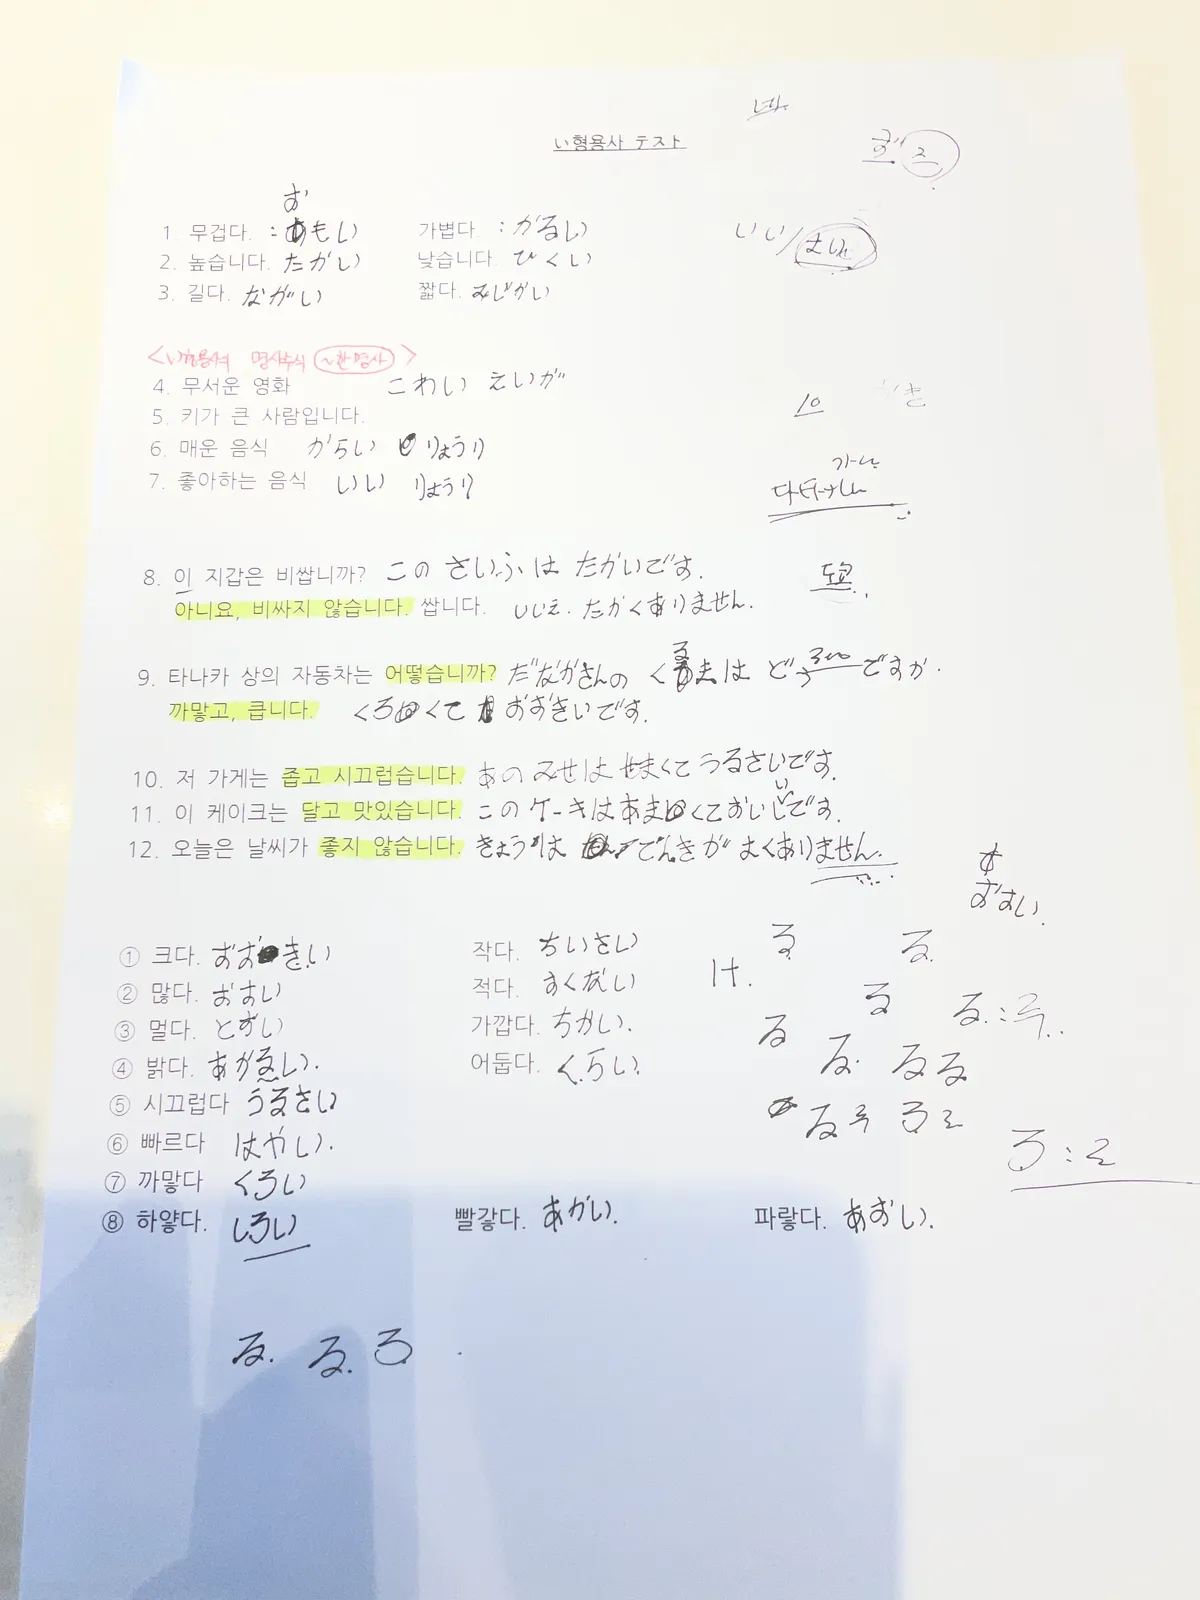 い형용사 テスト
お
1. 무겁다. : おもい 가볍다. : かるい
いい/よい
2. 높습니다. たかい 낮습니다. ひくい
3. 길다. ながい 짧다. みじかい
<い형용사의 명사수식 (~한 명사)>
4. 무서운 영화 こわい えいが
10
5. 키가 큰 사람입니다.
6. 매운 음식 からい りょうり
7. 좋아하는 음식 いい りょうり
8. 이 지갑은 비쌉니까? この さいふ は たかいです.
아니요, 비싸지 않습니다. 쌉니다. いいえ. たかくありません.
る
9. 타나카 상의 자동차는 어떻습니까? だなかさんの くまは どう ですか.
까맣고, 큽니다. くろくて おおきいです.
10. 저 가게는 좁고 시끄럽습니다. あの みせは せまくて うるさいです.
い
11. 이 케이크는 달고 맛있습니다. この ケーキはあまくておいしです.
12. 오늘은 날씨가 좋지 않습니다. きょうは てんきが よくありません.
① 크다. おおきい 작다. ちいさい
る る.
け.
② 많다. おおい 적다. すくない
る る.:루..
③ 멀다. とおい 가깝다. ちかい.
る
④ 밝다. あかるい. 어둡다. くらい.
る. る る
⑤ 시끄럽다 うるさい
る루 ろ로
⑥ 빠르다 はやい.
ろ:로
⑦ 까맣다 くろい
⑧ 하얗다. しろい 빨갛다. あかい. 파랗다. あおい.
る. る. ろ